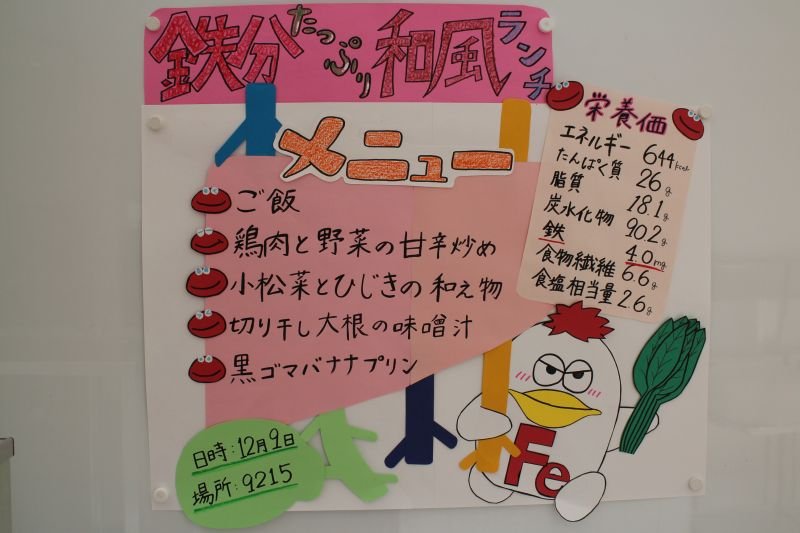 鉄分たっぷり和風ランチ
メニュー
ご飯
鶏肉と野菜の甘辛炒め
小松菜とひじきの和え物
切り干し大根の味噌汁
黒ゴマバナナプリン
日時:12月9日
場所:9215
栄養価
エネルギー 644kcal
たんぱく質 26g
脂質 18.1g
炭水化物 90.2g
鉄 4.0mg
食物繊維 6.6g
食塩相当量 2.6g
Fe